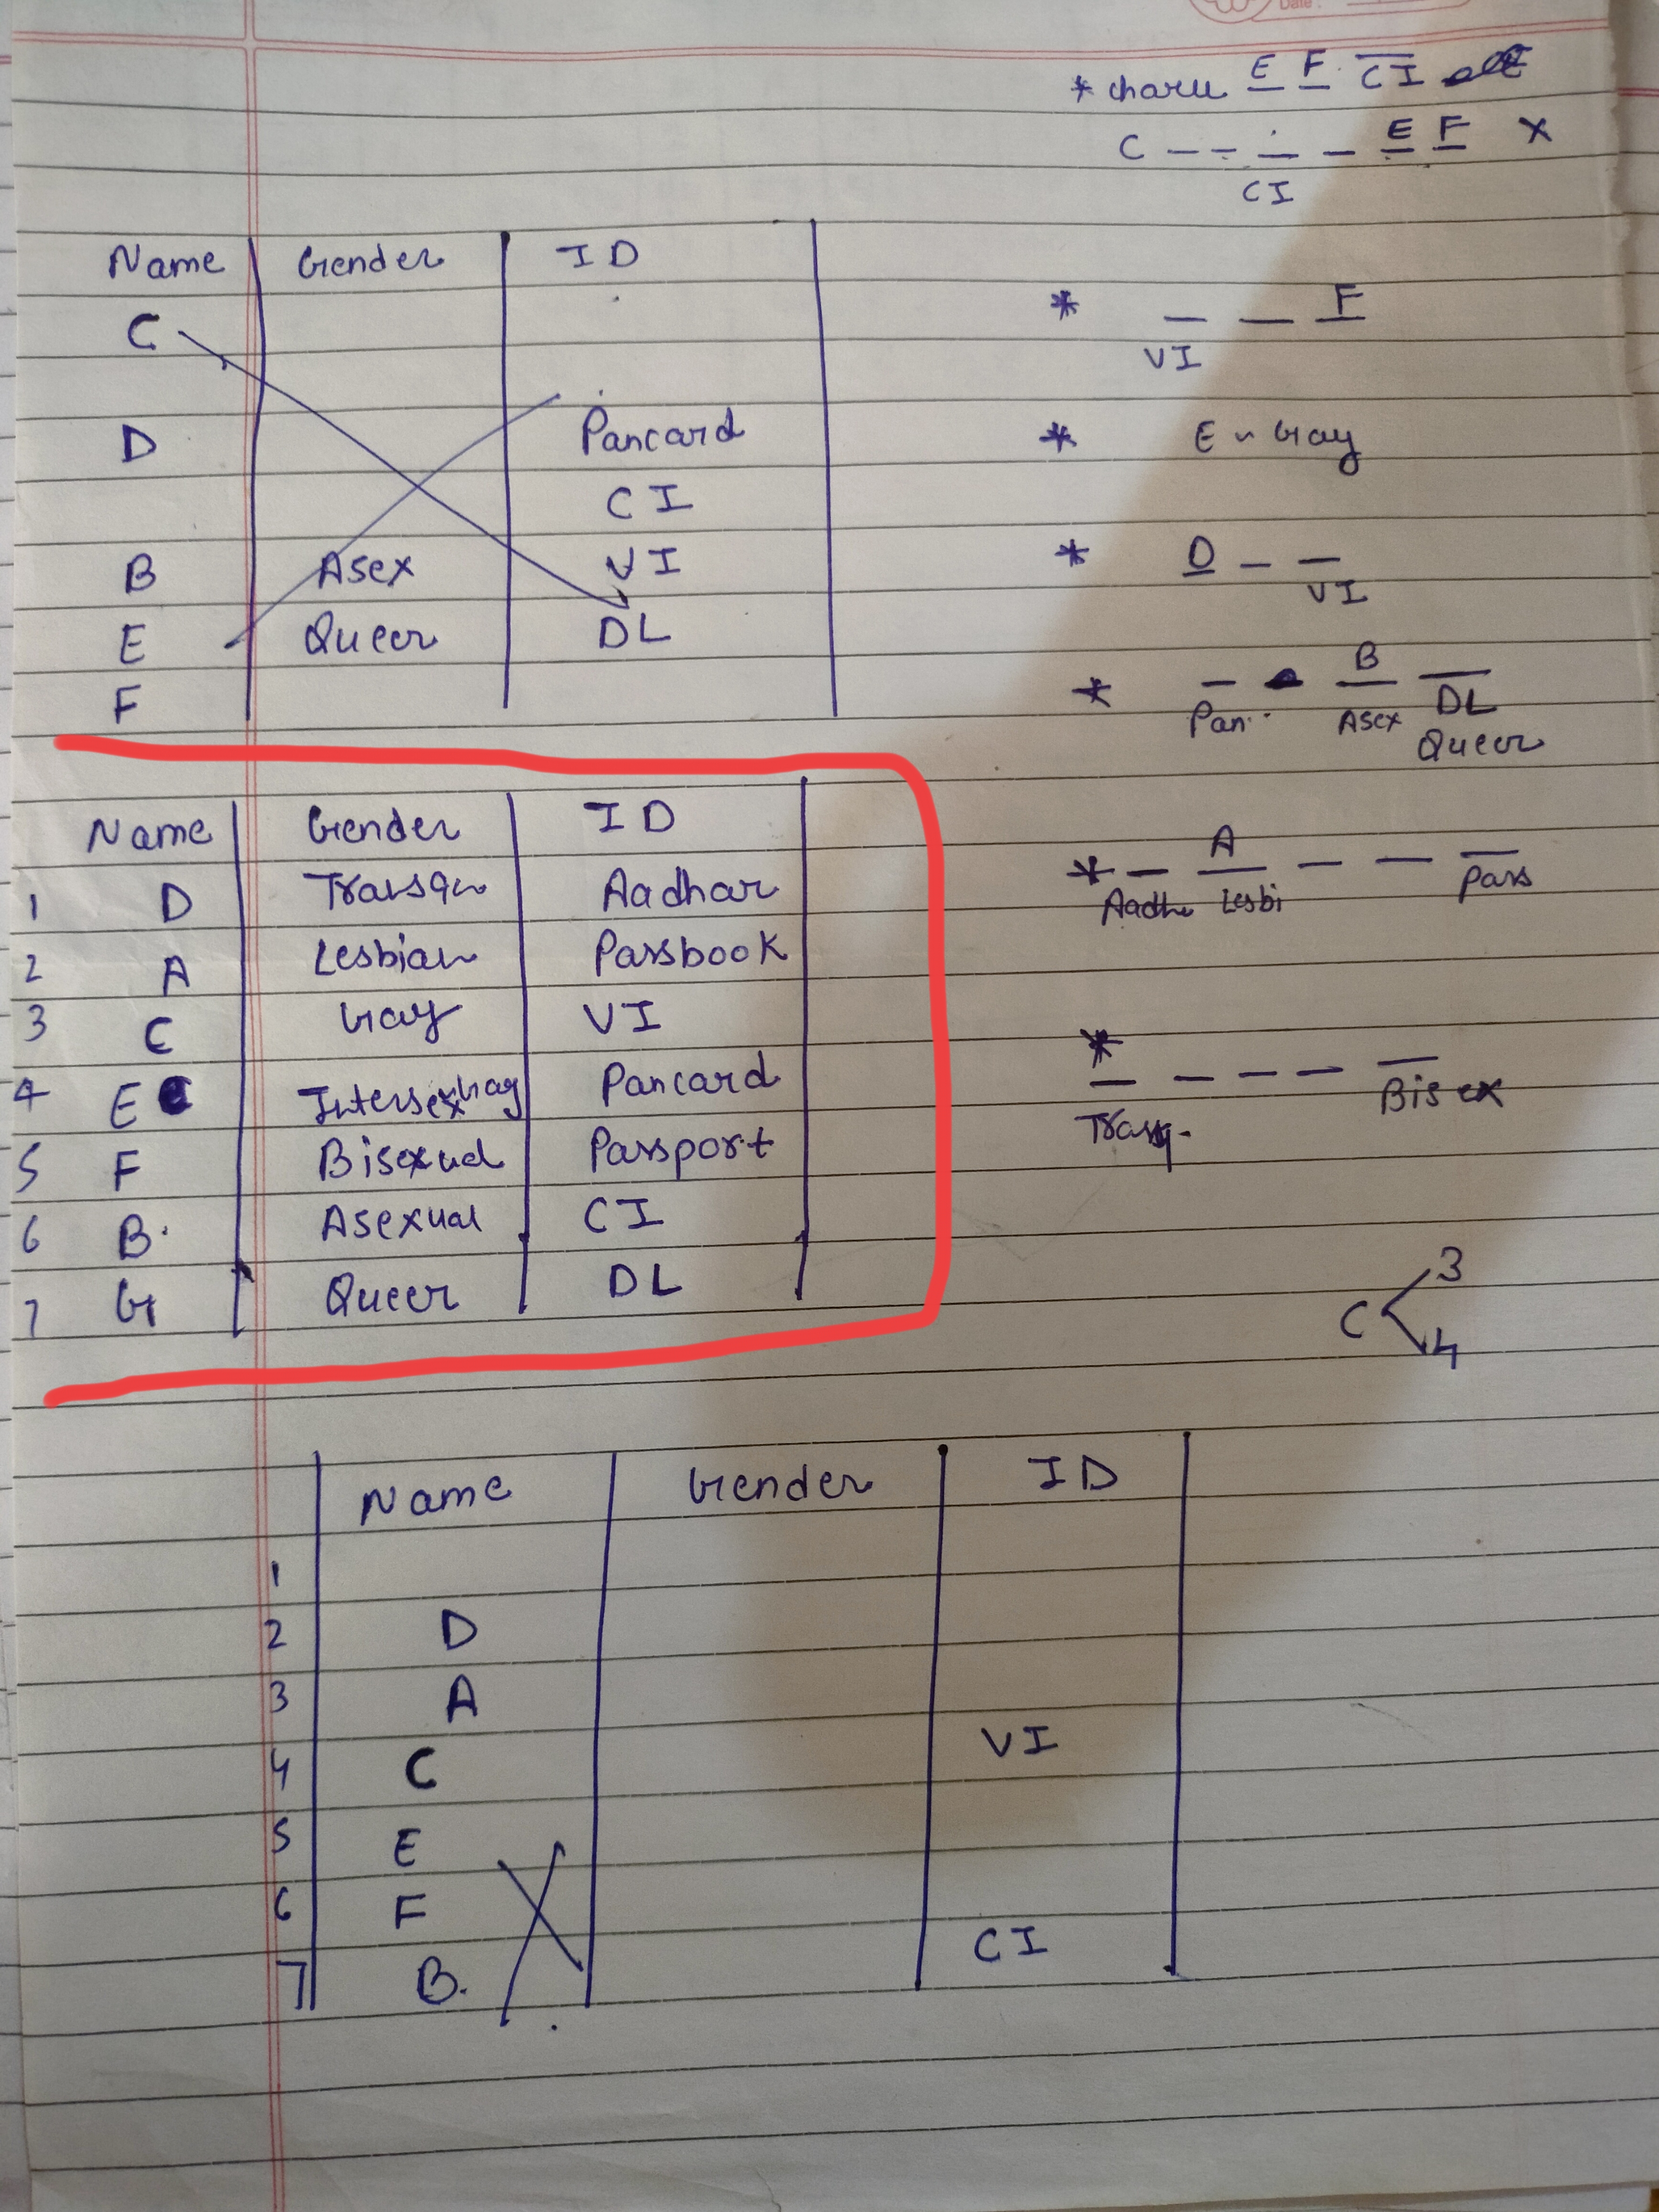 Date :
* charu E F CI
C _ _ _ _ E F X
CI
Name Gender ID
C
D Pancard
CI
B Asex VI
E Queer DL
F
* _ _ F
VI
* E ~ Gay
* D _ _
VI
* _ B _
Pan.. Asex DL
Queer
Name Gender ID
1 D Transgn Aadhar
2 A Lesbian Passbook
3 C Gay VI
4 E Intersex Pancard
5 F Bisexual Passport
6 B. Asexual CI
7 G Queer DL
* _ A _ _ _
Aadh Lesbi Pass
*
_ _ _ _ _
Bisex
C 3
4
Name Gender ID
1
2 D
3 A
4 C VI
5 E
6 F
7 B. CI